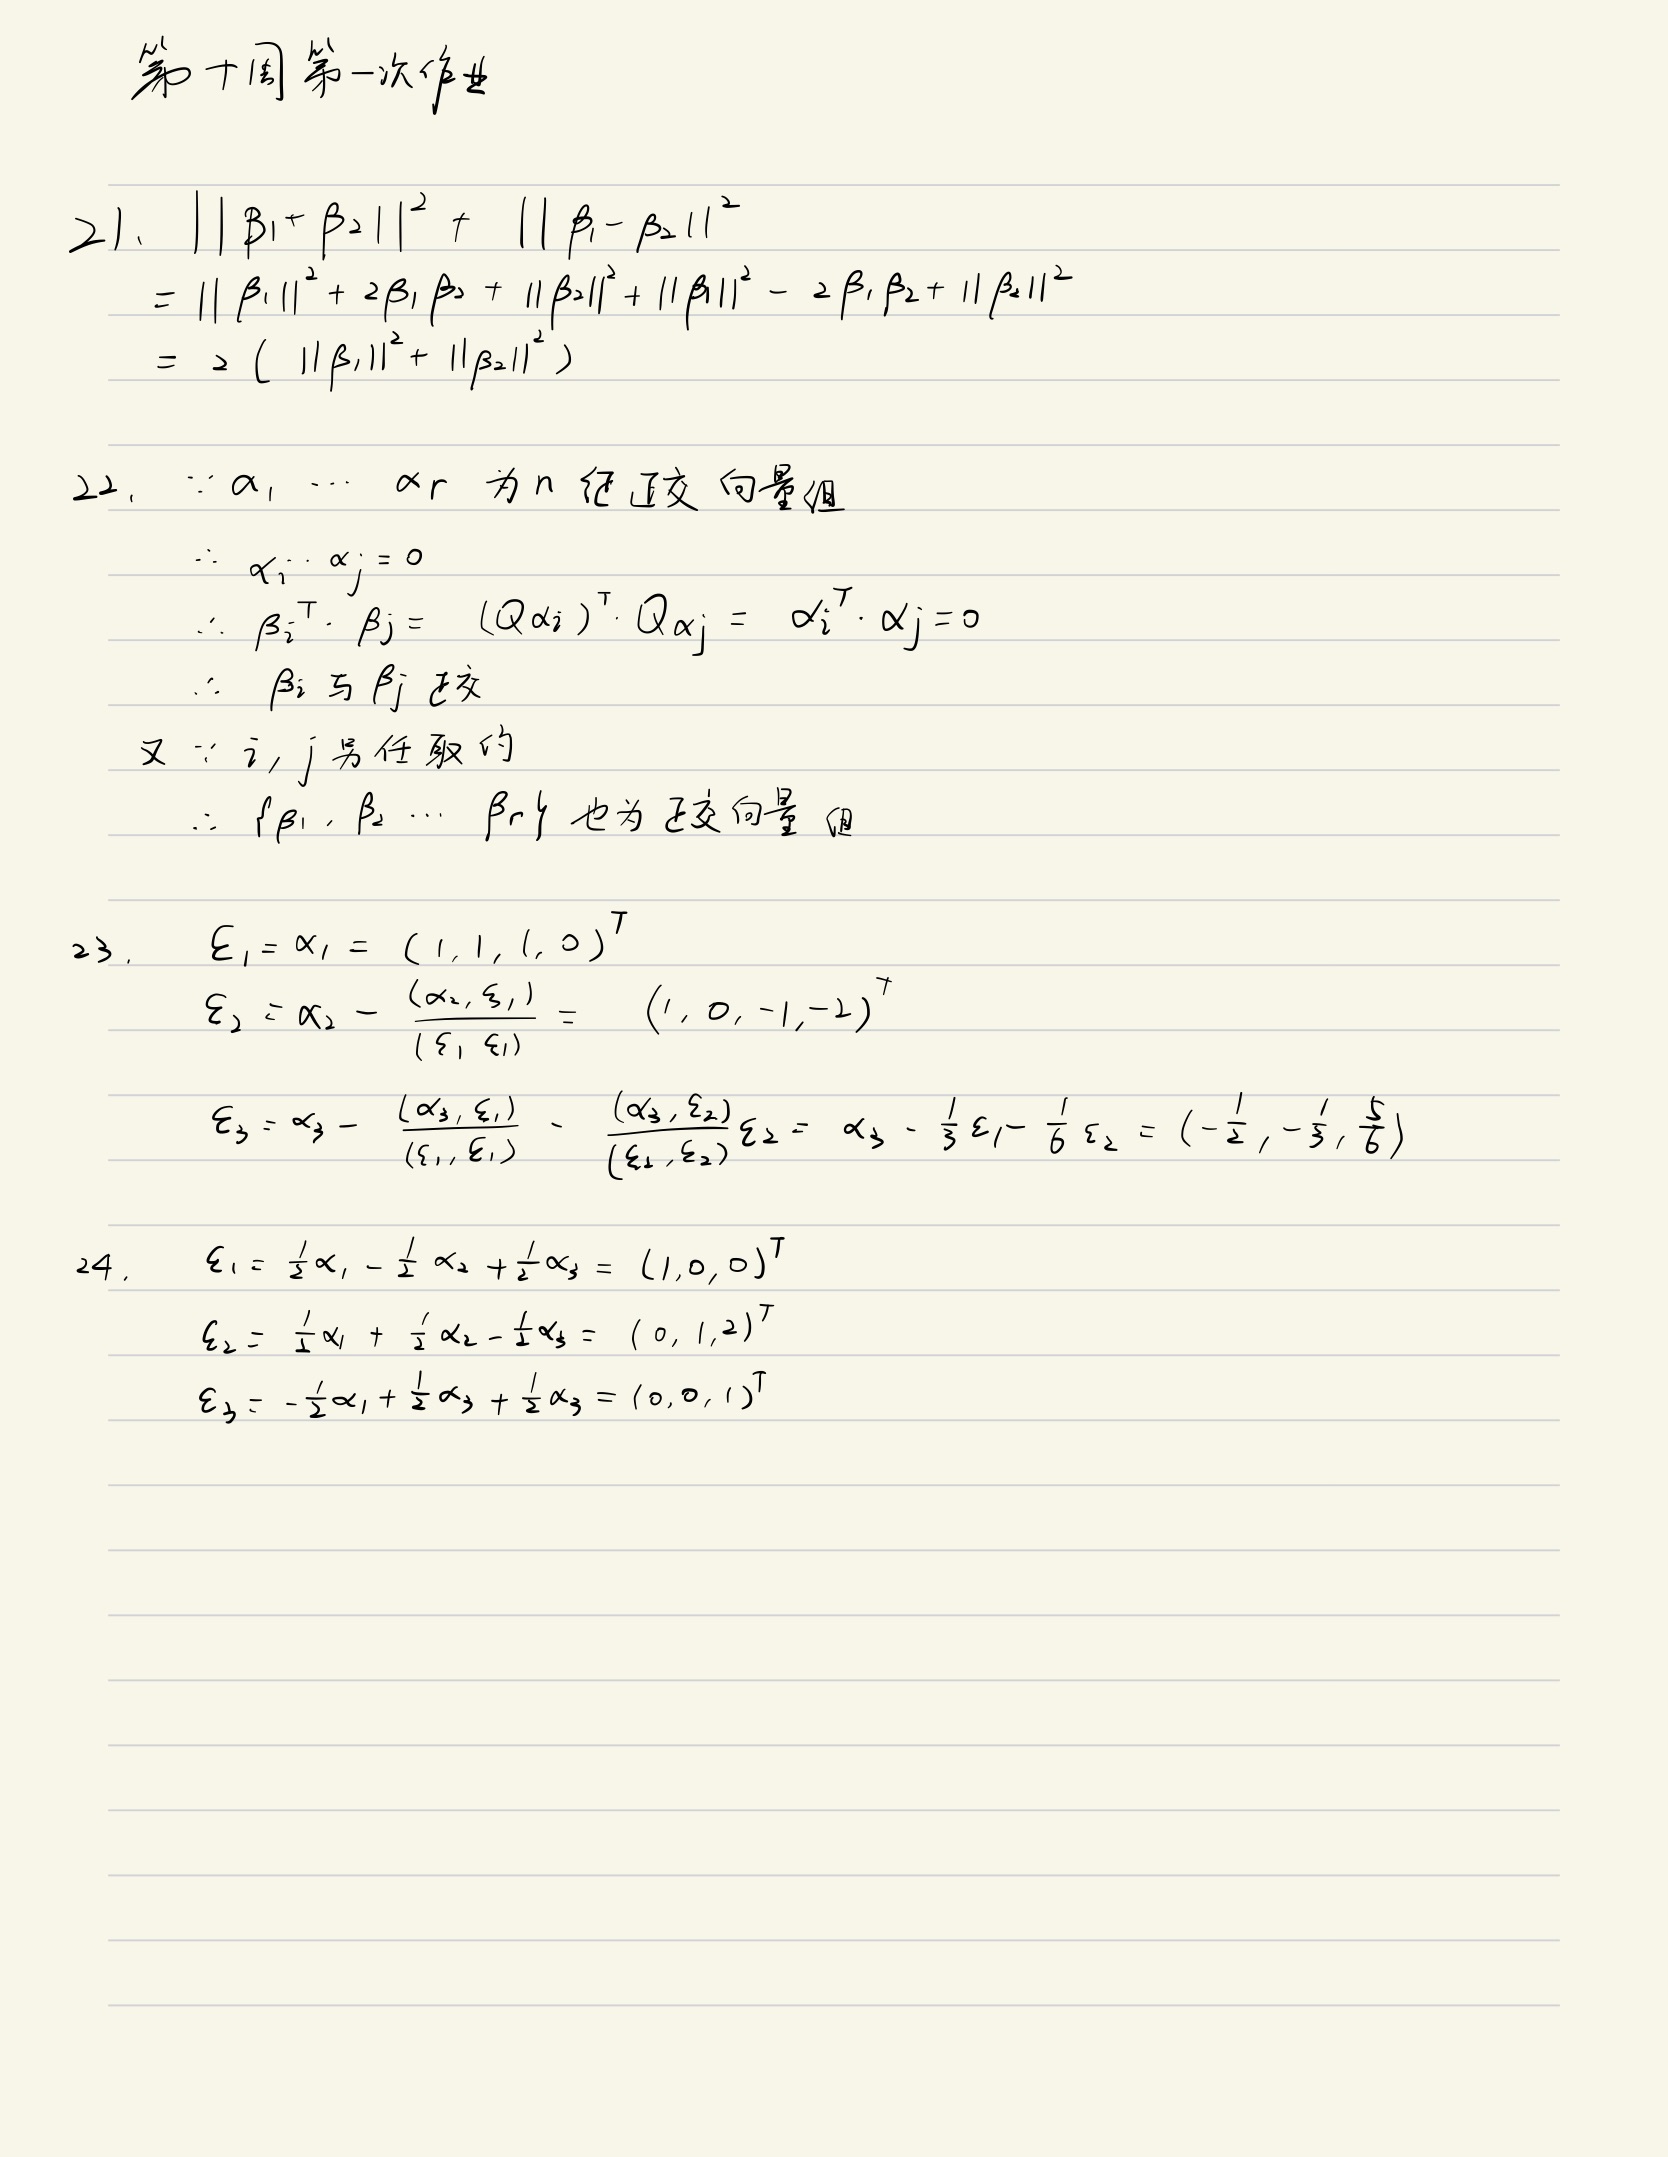 第十周第一次作业
21. ||β₁+β₂||² + ||β₁-β₂||²
= ||β₁||² + 2β₁β₂ + ||β₂||² + ||β₁||² - 2β₁β₂ + ||β₂||²
= 2 ( ||β₁||² + ||β₂||² )
22. ∵ α₁ ⋯ αr 为 n 维正交向量组
∴ αi · αj = 0
∴ βiᵀ · βj = (Qαi)ᵀ · Qαj = αiᵀ · αj = 0
∴ βi 与 βj 正交
又 ∵ i, j 为任取的
∴ {β₁, β₂ ⋯ βr} 也为正交向量组
23. ε₁ = α₁ = (1, 1, 1, 0)ᵀ
ε₂ = α₂ - (α₂, ε₁)/(ε₁ ε₁) = (1, 0, -1, -2)ᵀ
ε₃ = α₃ - (α₃, ε₁)/(ε₁, ε₁) - (α₃, ε₂)/(ε₂, ε₂) ε₂ = α₃ - 1/3 ε₁ - 1/6 ε₂ = (-1/2, -1/3, 5/6)
24. ε₁ = 1/2 α₁ - 1/2 α₂ + 1/2 α₃ = (1, 0, 0)ᵀ
ε₂ = 1/2 α₁ + 1/2 α₂ - 1/2 α₃ = (0, 1, 2)ᵀ
ε₃ = -1/2 α₁ + 1/2 α₃ + 1/2 α₃ = (0, 0, 1)ᵀ